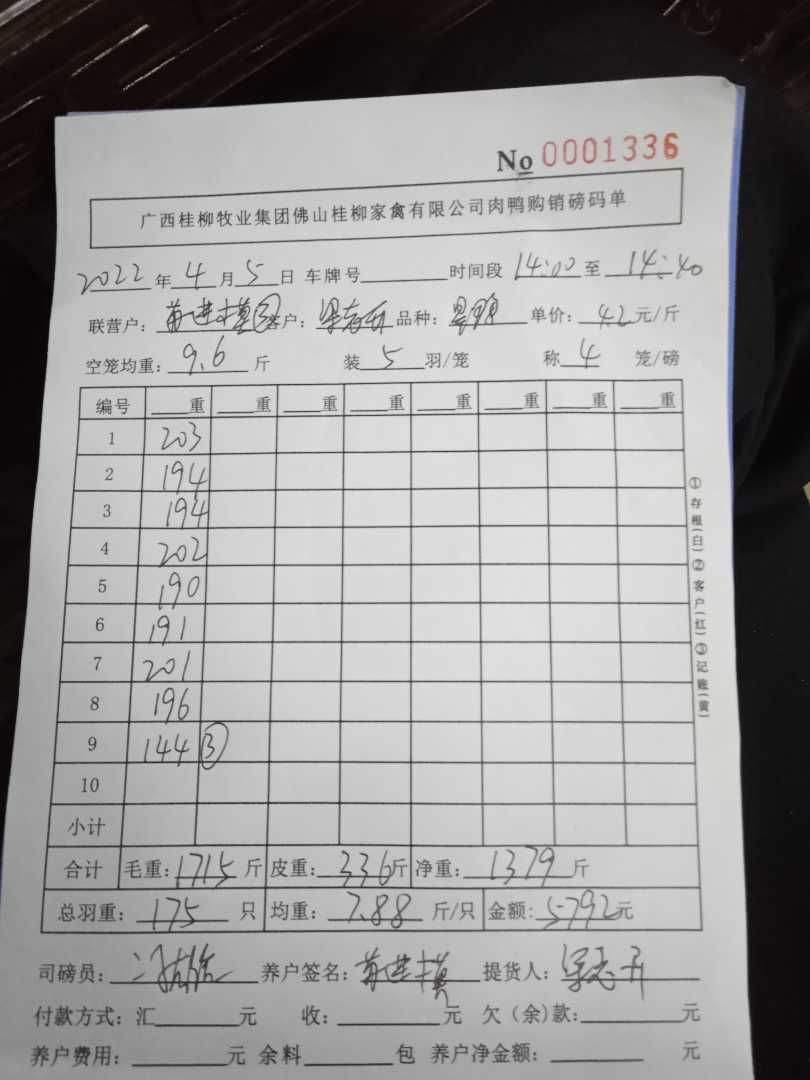 No 0001336
广西桂柳牧业集团佛山桂柳家禽有限公司肉鸭购销磅码单
2022年4月5日 车牌号 时间段 14:00至 14:40
联营户： 客户： 品种： 单价：4.2元/斤
空笼均重：9.6斤 装5羽/笼 称4笼/磅
编号 重 重 重 重 重 重 重 重
1 203
2 194
3 194
4 202
5 190
6 191
7 201
8 196
9 144 ③
10
小计
合计 毛重：1715斤 皮重：336斤 净重：1379斤
总羽重：175只 均重：7.88斤/只 金额：5792元
司磅员： 养户签名： 提货人：
付款方式：汇 元 收： 元 欠（余）款： 元
养户费用： 元 余料 包 养户净金额： 元
①存根（白）②客户（红）③记账（黄）